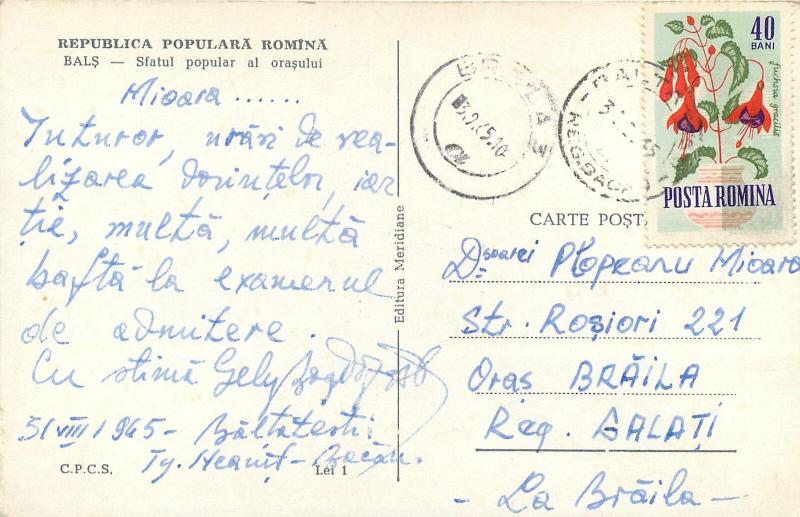 REPUBLICA POPULARĂ ROMÎNĂ
BALȘ — Sfatul popular al orașului
Mioara ......
Tuturor, urări de rea-
lizarea dorințelor, iar
ție, multă, multă
baftă la examenul
de admitere.
Cu stimă Gely
31/VIII/1965 - Bălțătești.
Tg. Neamț - Bacău.
C.P.C.S.
Lei 1
Editura Meridiane
40
BANI
fuchsia gracilis
POSTA ROMINA
CARTE POȘT
Dșoarei Plopeanu Mioara
Str. Roșiori 221
Oraș BRĂILA
Reg. GALAȚI
- La Brăila -